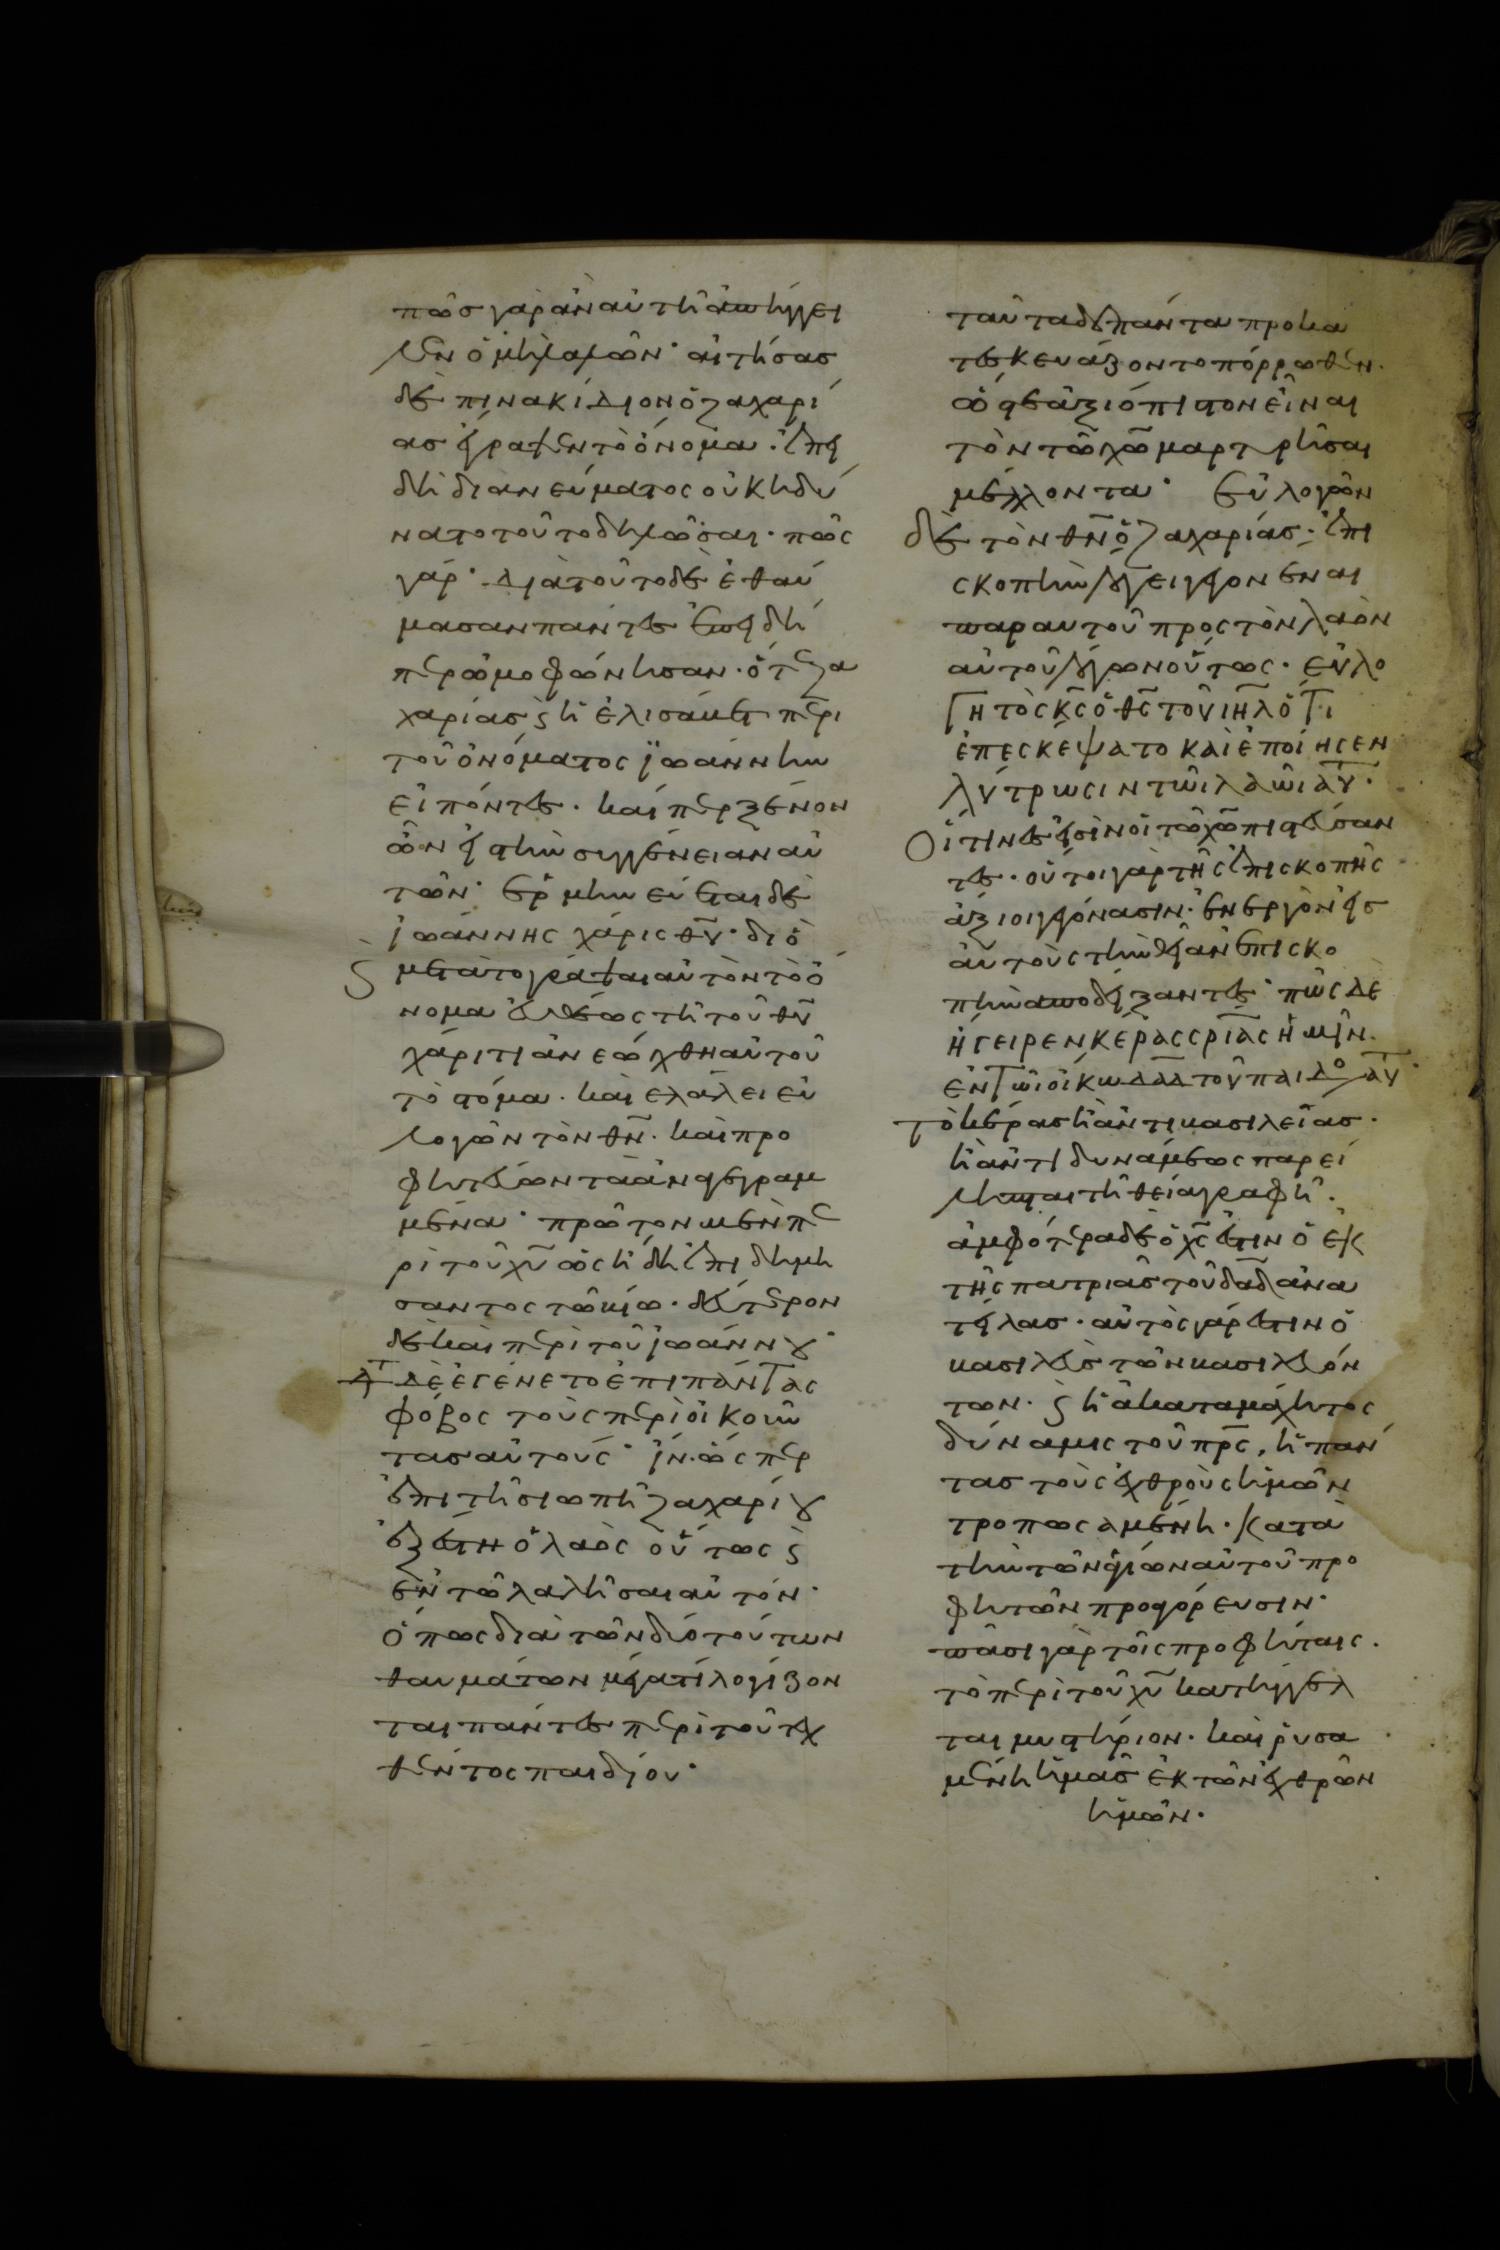 πῶς γὰρ ἂν αὐτῆ ἀπήγγει
λεν ὁ μὴ λαλῶν· αἰτήσας
δὲ πινακίδιον ὁ ζαχαρί
ας ἔγραψεν τὸ ὄνομα. ἐπει
δὴ διανεύματος οὐκ ἠδύ
νατο τοῦτο δηλῶσαι· πῶς
γάρ· διὰ τοῦτο δὲ ἐθαύ
μασαν πάντες ἐπειδή
περ ὡμοφώνησαν. ὅτε ζα
χαρίας ϛ ἡ ἐλισάβετ περι
τοῦ ὀνόματος ἰωάννην
εἰπόντες. καίπερ ξένον
ὂν εἰς τὴν συγγένειαν αὐ
τῶν· ἑρμηνεύεται δὲ
ἰωάννης χάρις θῦ· διὸ
ϛ μετὰ τὸ γράψαι αὐτὸν τὸ ὄ
νομα εὐθέως τῆ τοῦ θῦ
χάριτι ἀνεώχθη αὐτοῦ
τὸ στόμα. καὶ ἐλάλει εὐ
λογῶν τὸν θν̄. καὶ προ
φητεύων τὰ ἀναγεγραμ
μένα· πρῶτον μὲν πε
ρὶ τοῦ χῦ ὡς ἤδη ἐπιδημή
σαντος τῶ βίω. δεύτερον
δὲ καὶ περὶ τοῦ ἰωάννου·
δὲ ἐγένετο ἐπὶ πάντας
φόβος τοὺς περιοικοῦν
τας αὐτούς· ἵν' ὥσπερ
ἐπὶ τῆ σιωπῆ ζαχαρίου
ἐξέστη ὁ λαὸς οὕτως ϛ
ἐν τῶ λαλῆσαι αὐτόν·
ὅπως διὰ τῶν δύο τούτων
θαυμάτων μέγα τι λογίζον
ται πάντες περὶ τοῦ τεχ
θέντος παιδίου·
ταῦτα δὲ πάντα προκα
τεσκευάζοντο πόρρωθεν.
ὥστε ἀξιόπιστον εἶναι
τὸν τῶ χῶ μαρτυρῆσαι
μέλλοντα· εὐλογῶν
δὲ τὸν θν̄ ὁ ζαχαρίας. ἐπι
σκοπὴν λέγει γεγονέναι
παρ αυτοῦ πρὸς τὸν λαὸν
αὐτοῦ λέγων οὕτως. εὐλο
γητὸς κς̄ ὁ θς̄ τοῦ ιηλ̄ ὅτι
ἐπεσκέψατο καὶ ἐποίησεν
λύτρωσιν τῶι λαῶι αὐτ·
οἵτινές εἰσὶν οἱ τῶ χῶ πιστεύσαν
τες. οὗτοι γὰρ τῆς ἐπισκοπῆς
ἄξιοι γεγόνασιν. ἐνεργὸν εἰς
αὐτοὺς τὴν θείαν ἐπισκο
πὴν ἀποδείξαντες· πῶς δὲ
ἤγειρεν κέρας σρίας ἡμῖν.
ἐν τῶι οἴκω δαδ τοῦ παιδὸ αὐτ·
τὸ κέρας ἢ ἀντι βασιλείας.
ἢ ἀντὶ δυνάμεως παρεί
ληπται τῆ θεία γραφῆ.
ἀμφότερα δὲ ὁ χς̄ ἐστιν ὁ ἐκ
τῆς πατριᾶς τοῦ δᾱδ ἀνα
τείλας. αὐτὸς γάρ ἐστιν ὁ
βασιλεὺς τῶν βασιλευόν
των. ϛ ἡ ἀκαταμάχητος
δύναμις τοῦ πρς̄, ἡ πάν
τας τοὺς ἐχθροὺς ἡμῶν
τροπωσαμένη. κατὰ
τὴν τῶν ἁγίων αὐτοῦ προ
φητῶν προαγόρευσιν·
πᾶσι γὰρ τοῖς προφήταις.
τὸ περὶ τοῦ χῦ κατήγγελ
ται μυστήριον. καὶ ῥυσα
μένη ἡμᾶς ἐκ τῶν ἐχθρῶν
ἡμῶν.